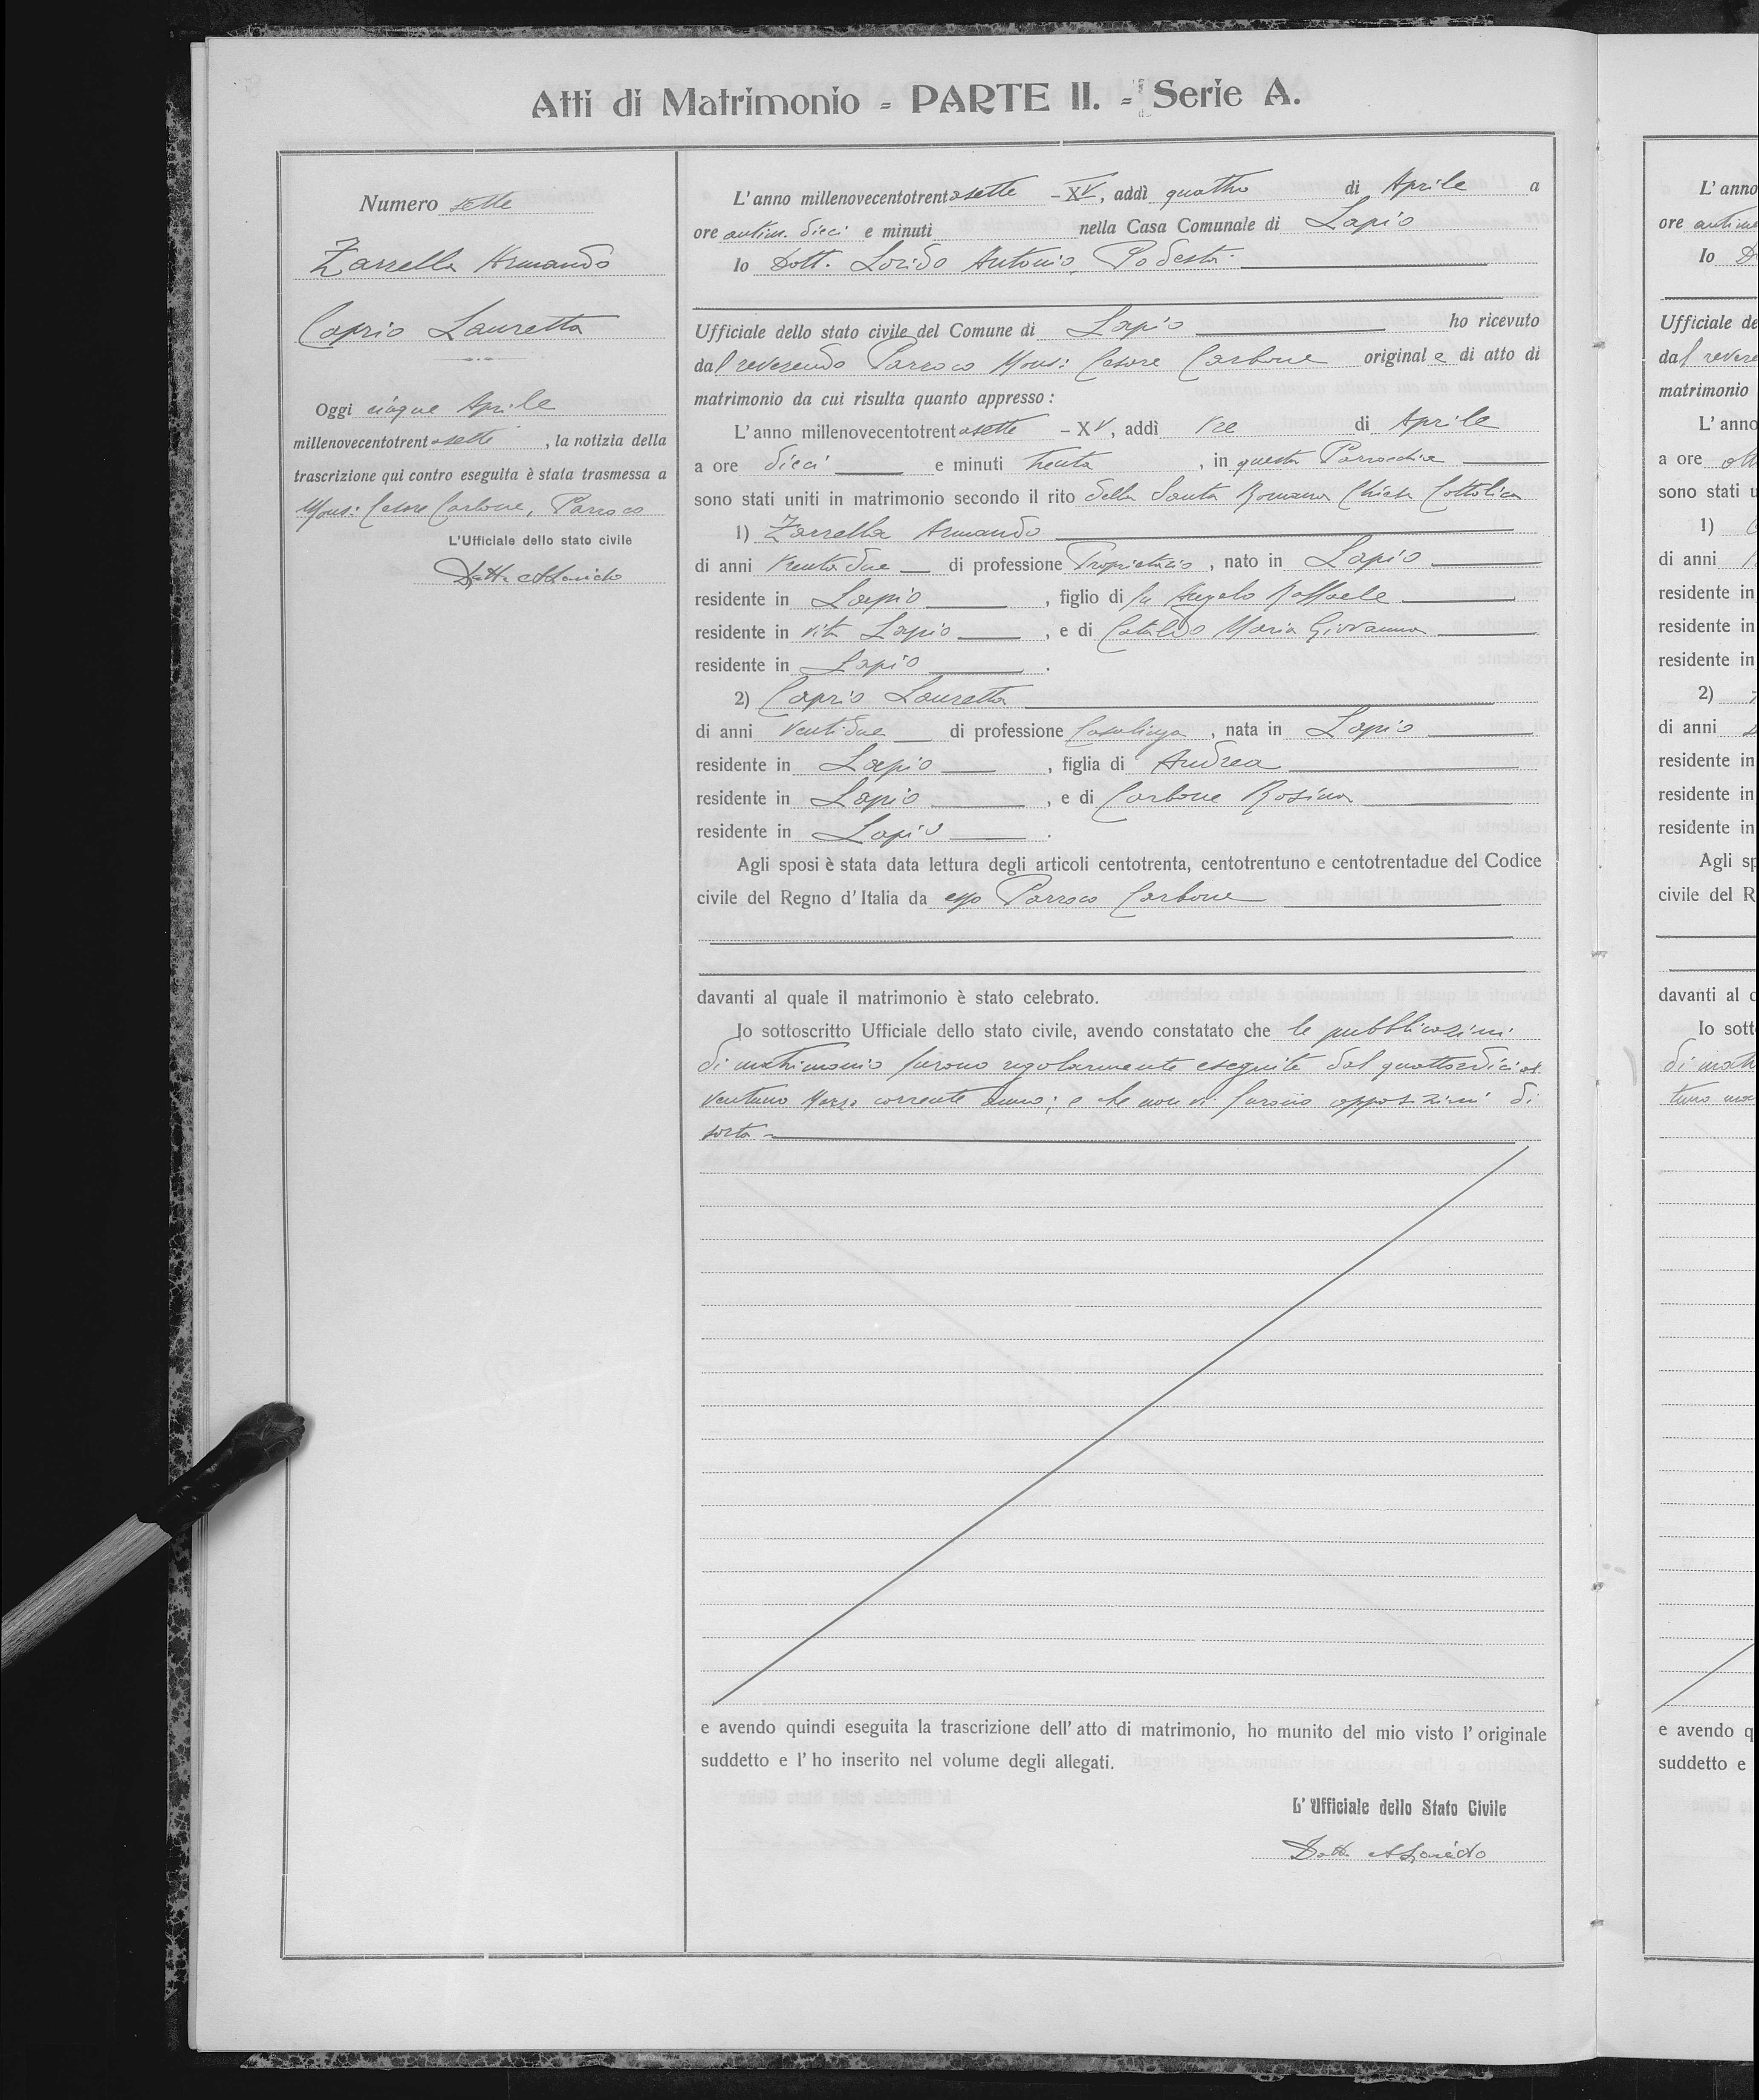 Atti di Matrimonio - PARTE II. - Serie A.
Numero sette
Zarrella Armando
Caprio Lauretta
Oggi cinque Aprile
millenovecentotrentasette, la notizia della
trascrizione qui contro eseguita è stata trasmessa a
Mons: Cesare Carbone, Parroco
L'Ufficiale dello stato civile
Dott. A Lorido
L'anno millenovecentotrentasette - XV, addì quattro di Aprile a
ore antim. dieci e minuti nella Casa Comunale di Lapio
Io Dott. Lorido Antonio, Podestà
Ufficiale dello stato civile del Comune di Lapio ho ricevuto
dal reverendo Parroco Mons: Cesare Carbone originale di atto di
matrimonio da cui risulta quanto appresso:
L'anno millenovecentotrentasette - XV, addì tre di Aprile
a ore dieci e minuti trenta, in questa Parrocchia
sono stati uniti in matrimonio secondo il rito della Santa Romana Chiesa Cattolica
1) Zarrella Armando
di anni trentadue di professione Proprietario, nato in Lapio
residente in Lapio, figlio di fu Angelo Raffaele
residente in vita Lapio, e di Cataldo Maria Giovanna
residente in Lapio.
2) Caprio Lauretta
di anni ventidue di professione Casalinga, nata in Lapio
residente in Lapio, figlia di Andrea
residente in Lapio, e di Carbone Rosina
residente in Lapio.
Agli sposi è stata data lettura degli articoli centotrenta, centotrentuno e centotrentadue del Codice
civile del Regno d'Italia da esso Parroco Carbone
davanti al quale il matrimonio è stato celebrato.
Io sottoscritto Ufficiale dello stato civile, avendo constatato che le pubblicazioni
di matrimonio furono regolarmente eseguite dal quattordici al
ventuno Marzo corrente anno; e che non vi furono opposizioni di
sorta -
e avendo quindi eseguita la trascrizione dell'atto di matrimonio, ho munito del mio visto l'originale
suddetto e l'ho inserito nel volume degli allegati.
L'Ufficiale dello Stato Civile
Dott. A Lorido
L'anno
ore antime
Io D
Ufficiale de
dal revere
matrimonio
L'anno
a ore
sono stati u
1)
di anni
residente in
residente in
residente in
2)
di anni
residente in
residente in
residente in
Agli sp
civile del R
davanti al q
Io sott
di mat
tuno mar
e avendo q
suddetto e